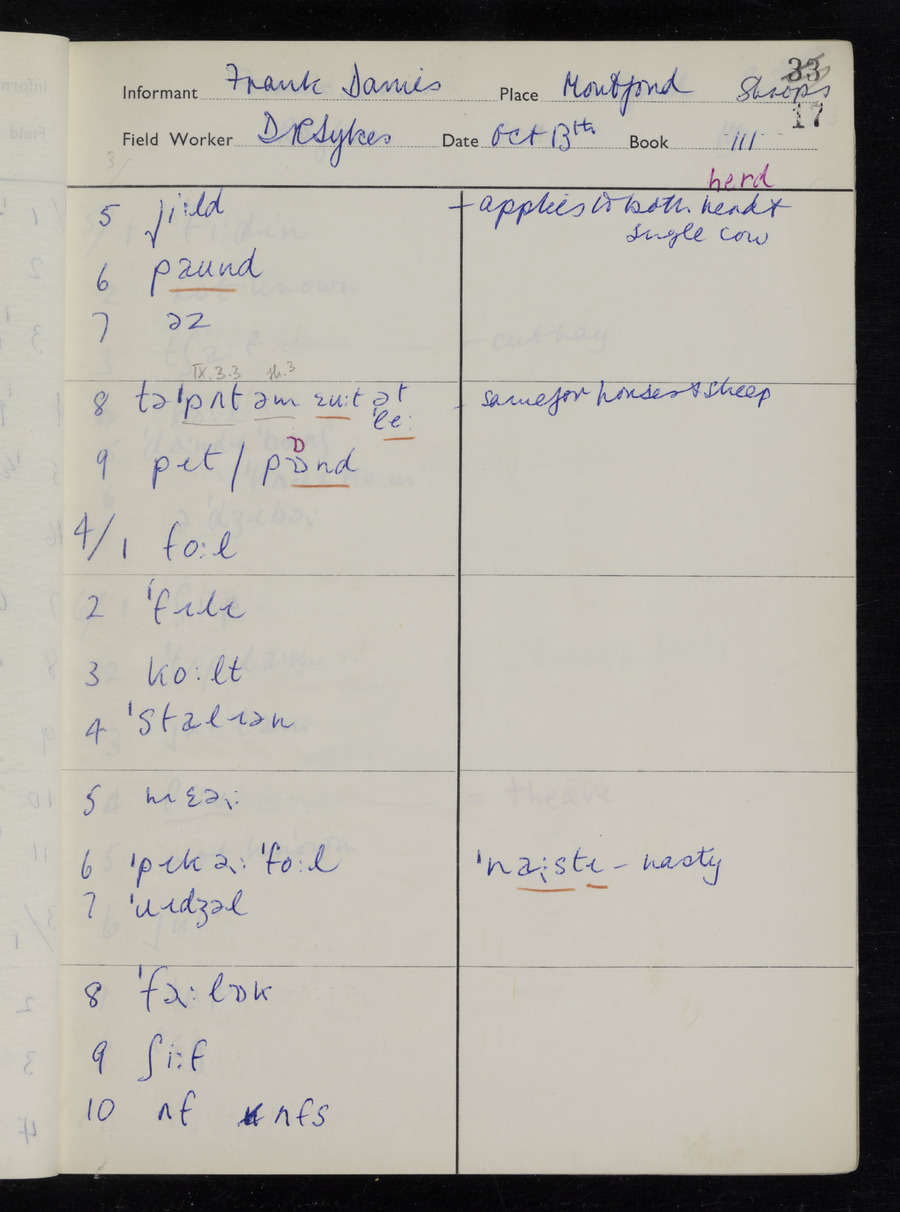 33
Informant Frank Davies Place Montford Shrops
17
Field Worker DRSykes Date Oct 13th Book III
3/
herd
5 ji:ld – applies to both herd +
single cow
6 pəund
7 əz
IX.3.3
8 tə ˈpʌt əm ɹuːt ət – same for horses & sheep
ˈleː
9 pɛt / pɒnd
4/1 foːl
2 ˈfɪlɪ
3 koːlt
4 ˈstalɪən
5 mɛəɹː
6 ˈpɪk əɹː ˈfoːl ˈnaːstɪ – nasty
7 ˈuɪdʒəl
8 ˈfaːlɒk
9 ʃiːf
10 ʌf ʌfs